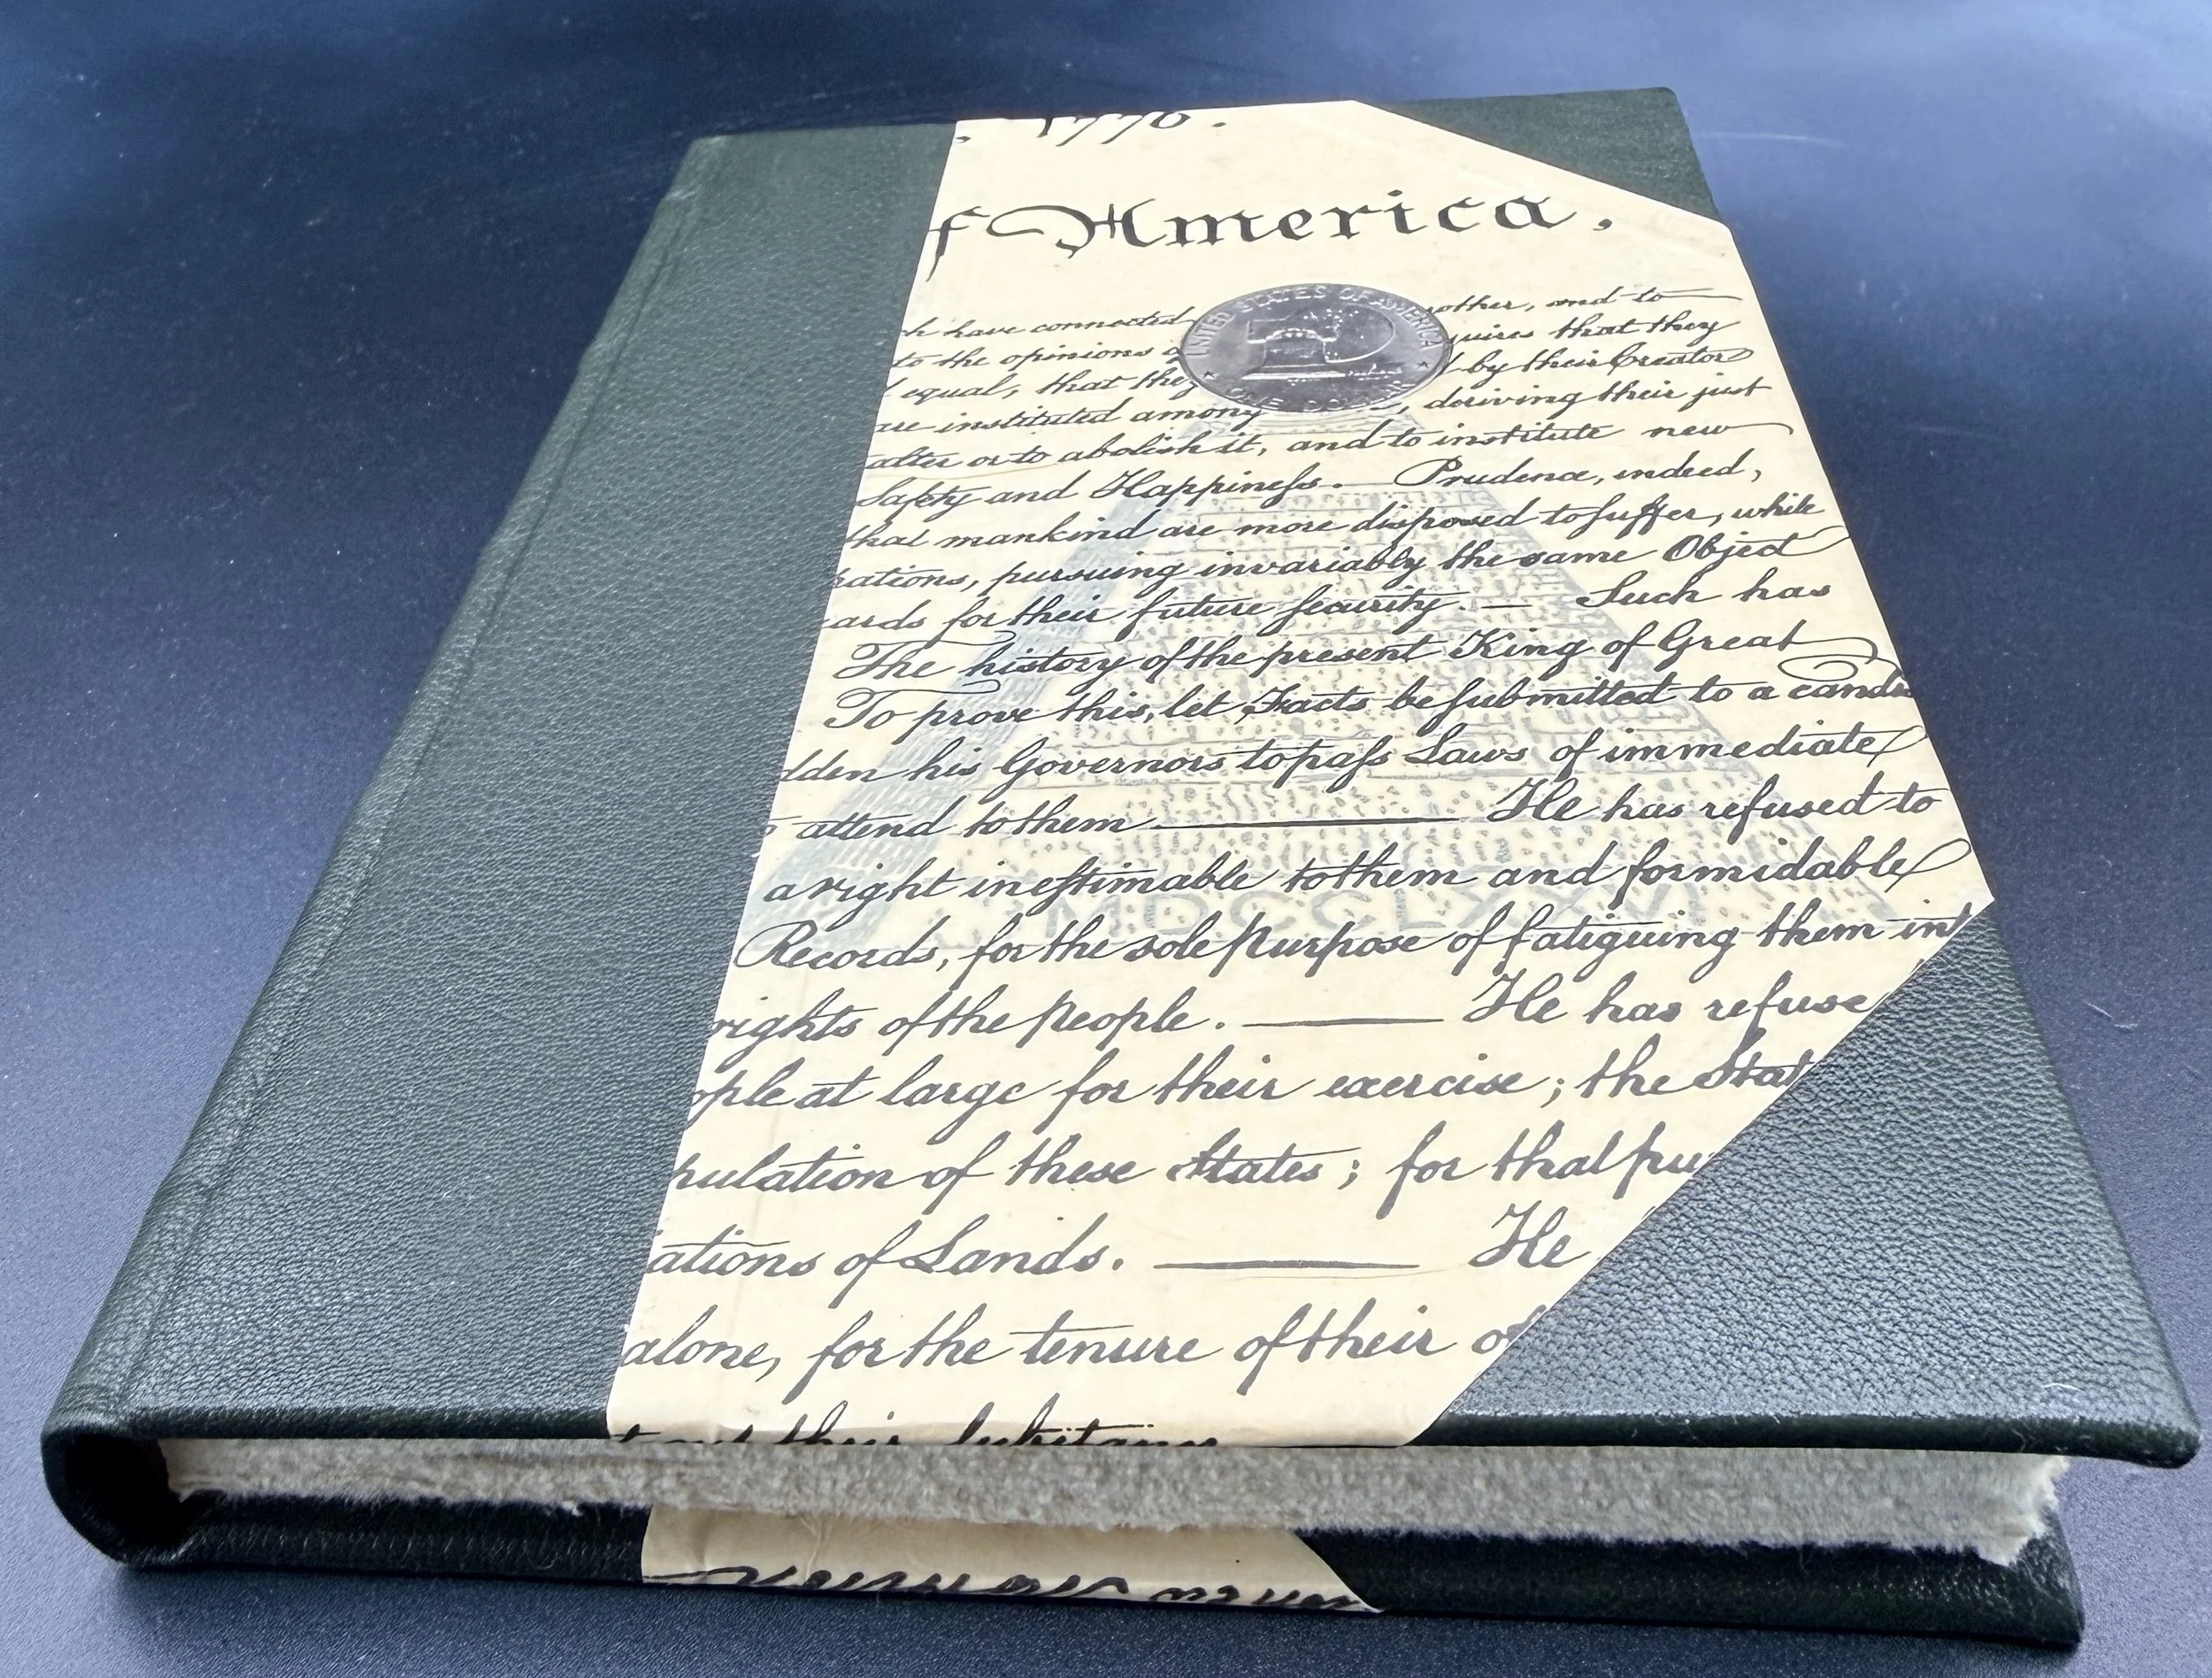 , 1776.
f America.
h have connected other, and to
UNITED STATES OF AMERICA
ONE DOLLAR
to the opinions quires that they
equal, that they by their Creator
are instituted among , deriving their just
alter or to abolish it, and to institute new
Safety and Happineſs. Prudence, indeed,
that mankind are more disposed to ſuffer, while
rations, pursuing invariably the same Object
ards for their future ſecurity. — Such has
The history of the present King of Great
To prove this, let Facts be ſubmitted to a candi
dden his Governors to paſs Laws of immediate
attend to them —— He has refused to
a right ineſtimable to them and formidable
Records, for the sole purpose of fatiguing them int
rights of the people. —— He has refuse
ople at large for their exercise; the Stat
pulation of these States; for that pur
iations of Lands. —— He
alone, for the tenure of their of
their ſubſtance
MDCCLXXVI